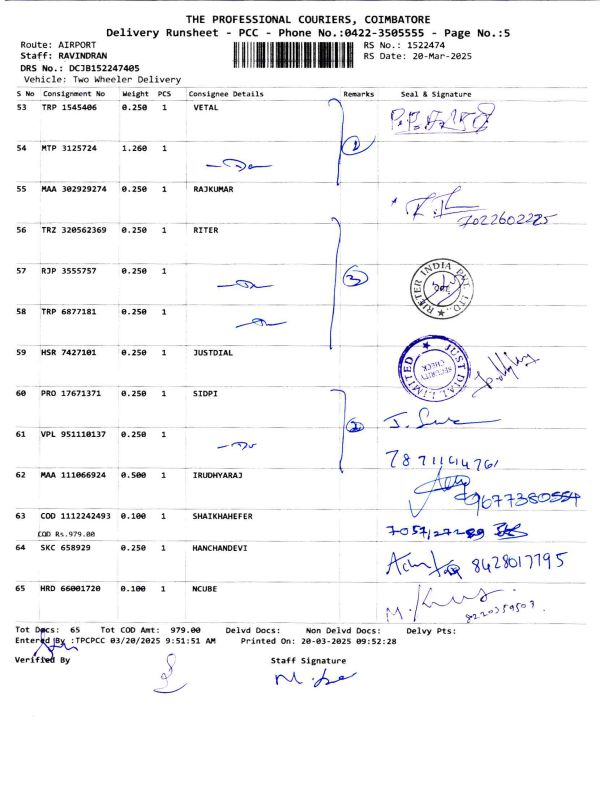 THE PROFESSIONAL COURIERS, COIMBATORE
Delivery Runsheet - PCC - Phone No.:0422-3505555 - Page No.:5
Route: AIRPORT
RS No.: 1522474
Staff: RAVINDRAN
RS Date: 20-Mar-2025
DRS No.: DCJB152247405
Vehicle: Two Wheeler Delivery
S No Consignment No Weight PCS Consignee Details Remarks Seal & Signature
53 TRP 1545406 0.250 1 VETAL
54 MTP 3125724 1.260 1
2
55 MAA 302929274 0.250 1 RAJKUMAR
7022602225
56 TRZ 320562369 0.250 1 RITER
57 RJP 3555757 0.250 1
3
RIETER INDIA PVT. LTD.
58 TRP 6877181 0.250 1
59 HSR 7427101 0.250 1 JUSTDIAL
JUST DIAL LIMITED
SECURITY CHECK
60 PRO 17671371 0.250 1 SIDPI
2
61 VPL 951110137 0.250 1
62 MAA 111066924 0.500 1 IRUDHYARAJ
9677380554
63 COD 1112242493 0.100 1 SHAIKHAHEFER
COD Rs.979.00
64 SKC 658929 0.250 1 HANCHANDEVI
8428017795
65 HRD 66001720 0.100 1 NCUBE
8220359503
Tot Docs: 65 Tot COD Amt: 979.00 Delvd Docs: Non Delvd Docs: Delvy Pts:
Entered By :TPCPCC 03/20/2025 9:51:51 AM Printed On: 20-03-2025 09:52:28
Verified By Staff Signature